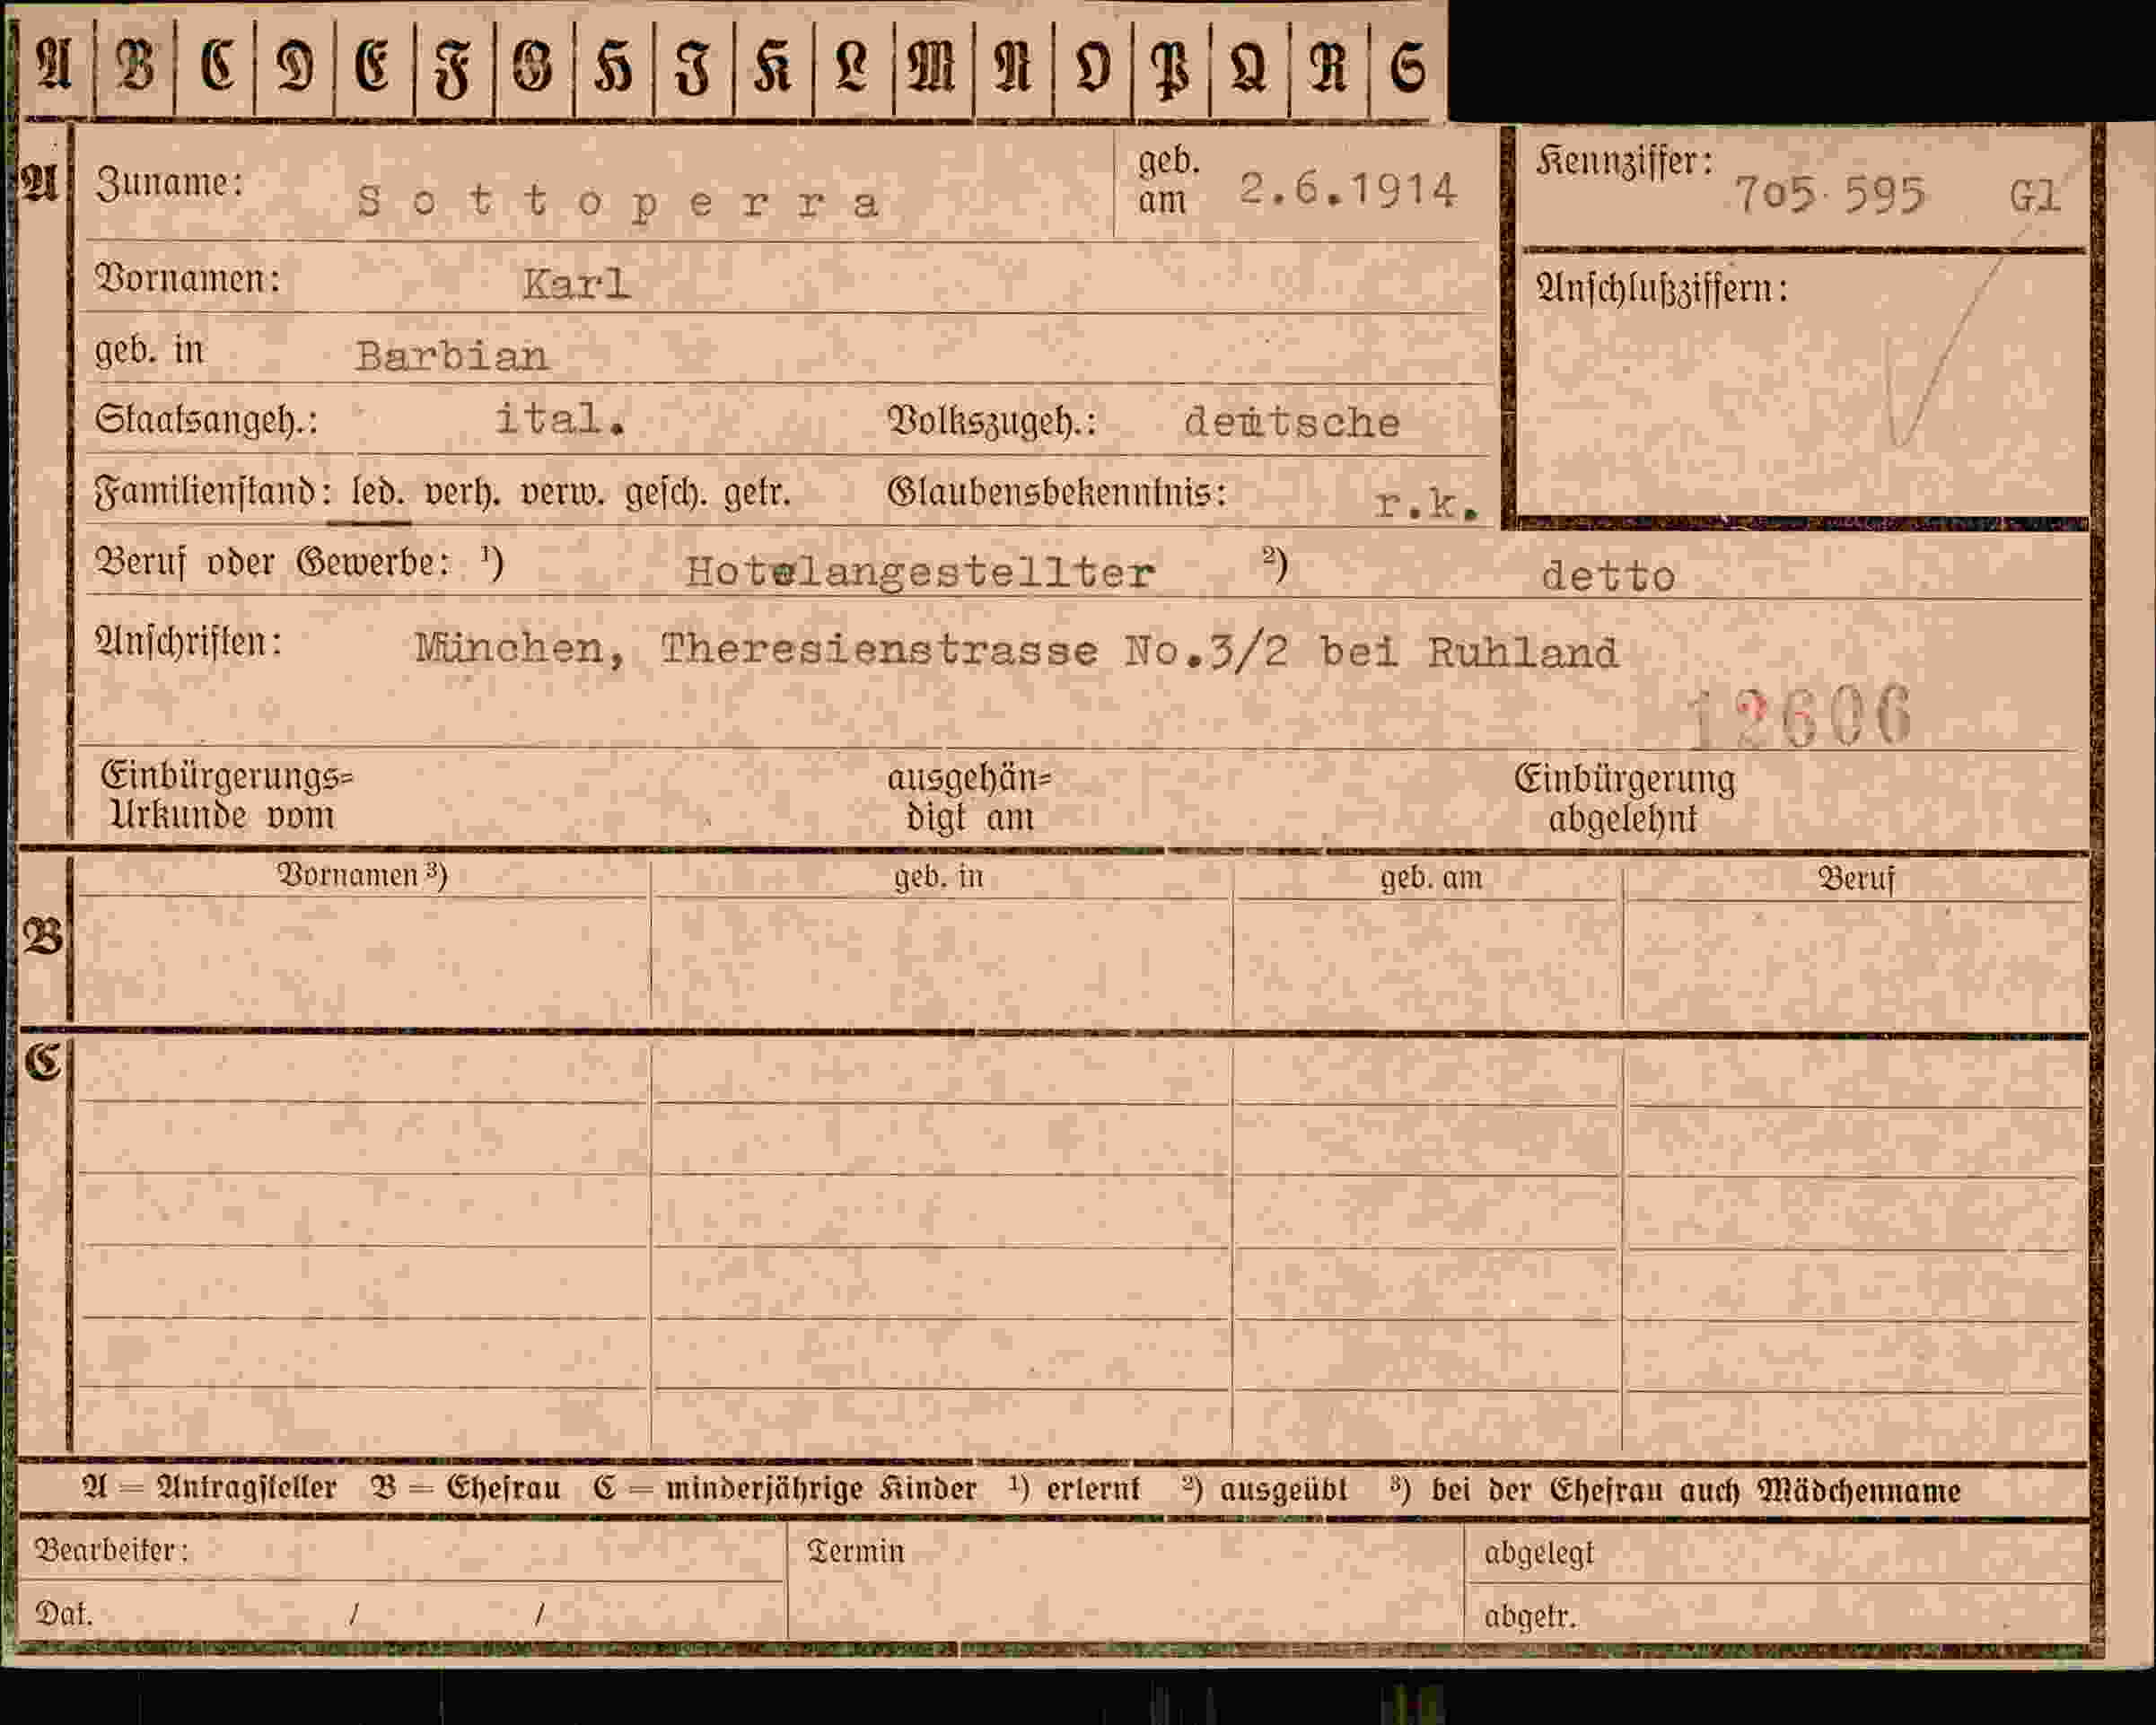 A B C D E F G H J K L M N O P Q R S
A Zuname: Sottoperra geb. am 2.6.1914 Kennziffer: 705 595 Gl
Vornamen: Karl Anschlußziffern:
geb. in Barbian
Staatsangeh.: ital. Volkszugeh.: deutsche
Familienstand: led. verh. verw. gesch. getr. Glaubensbekenntnis: r.k.
Beruf oder Gewerbe: ¹) Hotelangestellter ²) detto
Anschriften: München, Theresienstrasse No.3/2 bei Ruhland
12606
Einbürgerungs= ausgehän= Einbürgerung
Urkunde vom digt am abgelehnt
Vornamen ³) geb. in geb. am Beruf
B
C
A = Antragsteller B = Ehefrau C = minderjährige Kinder ¹) erlernt ²) ausgeübt ³) bei der Ehefrau auch Mädchenname
Bearbeiter: Termin abgelegt
Dat. / / abgetr.